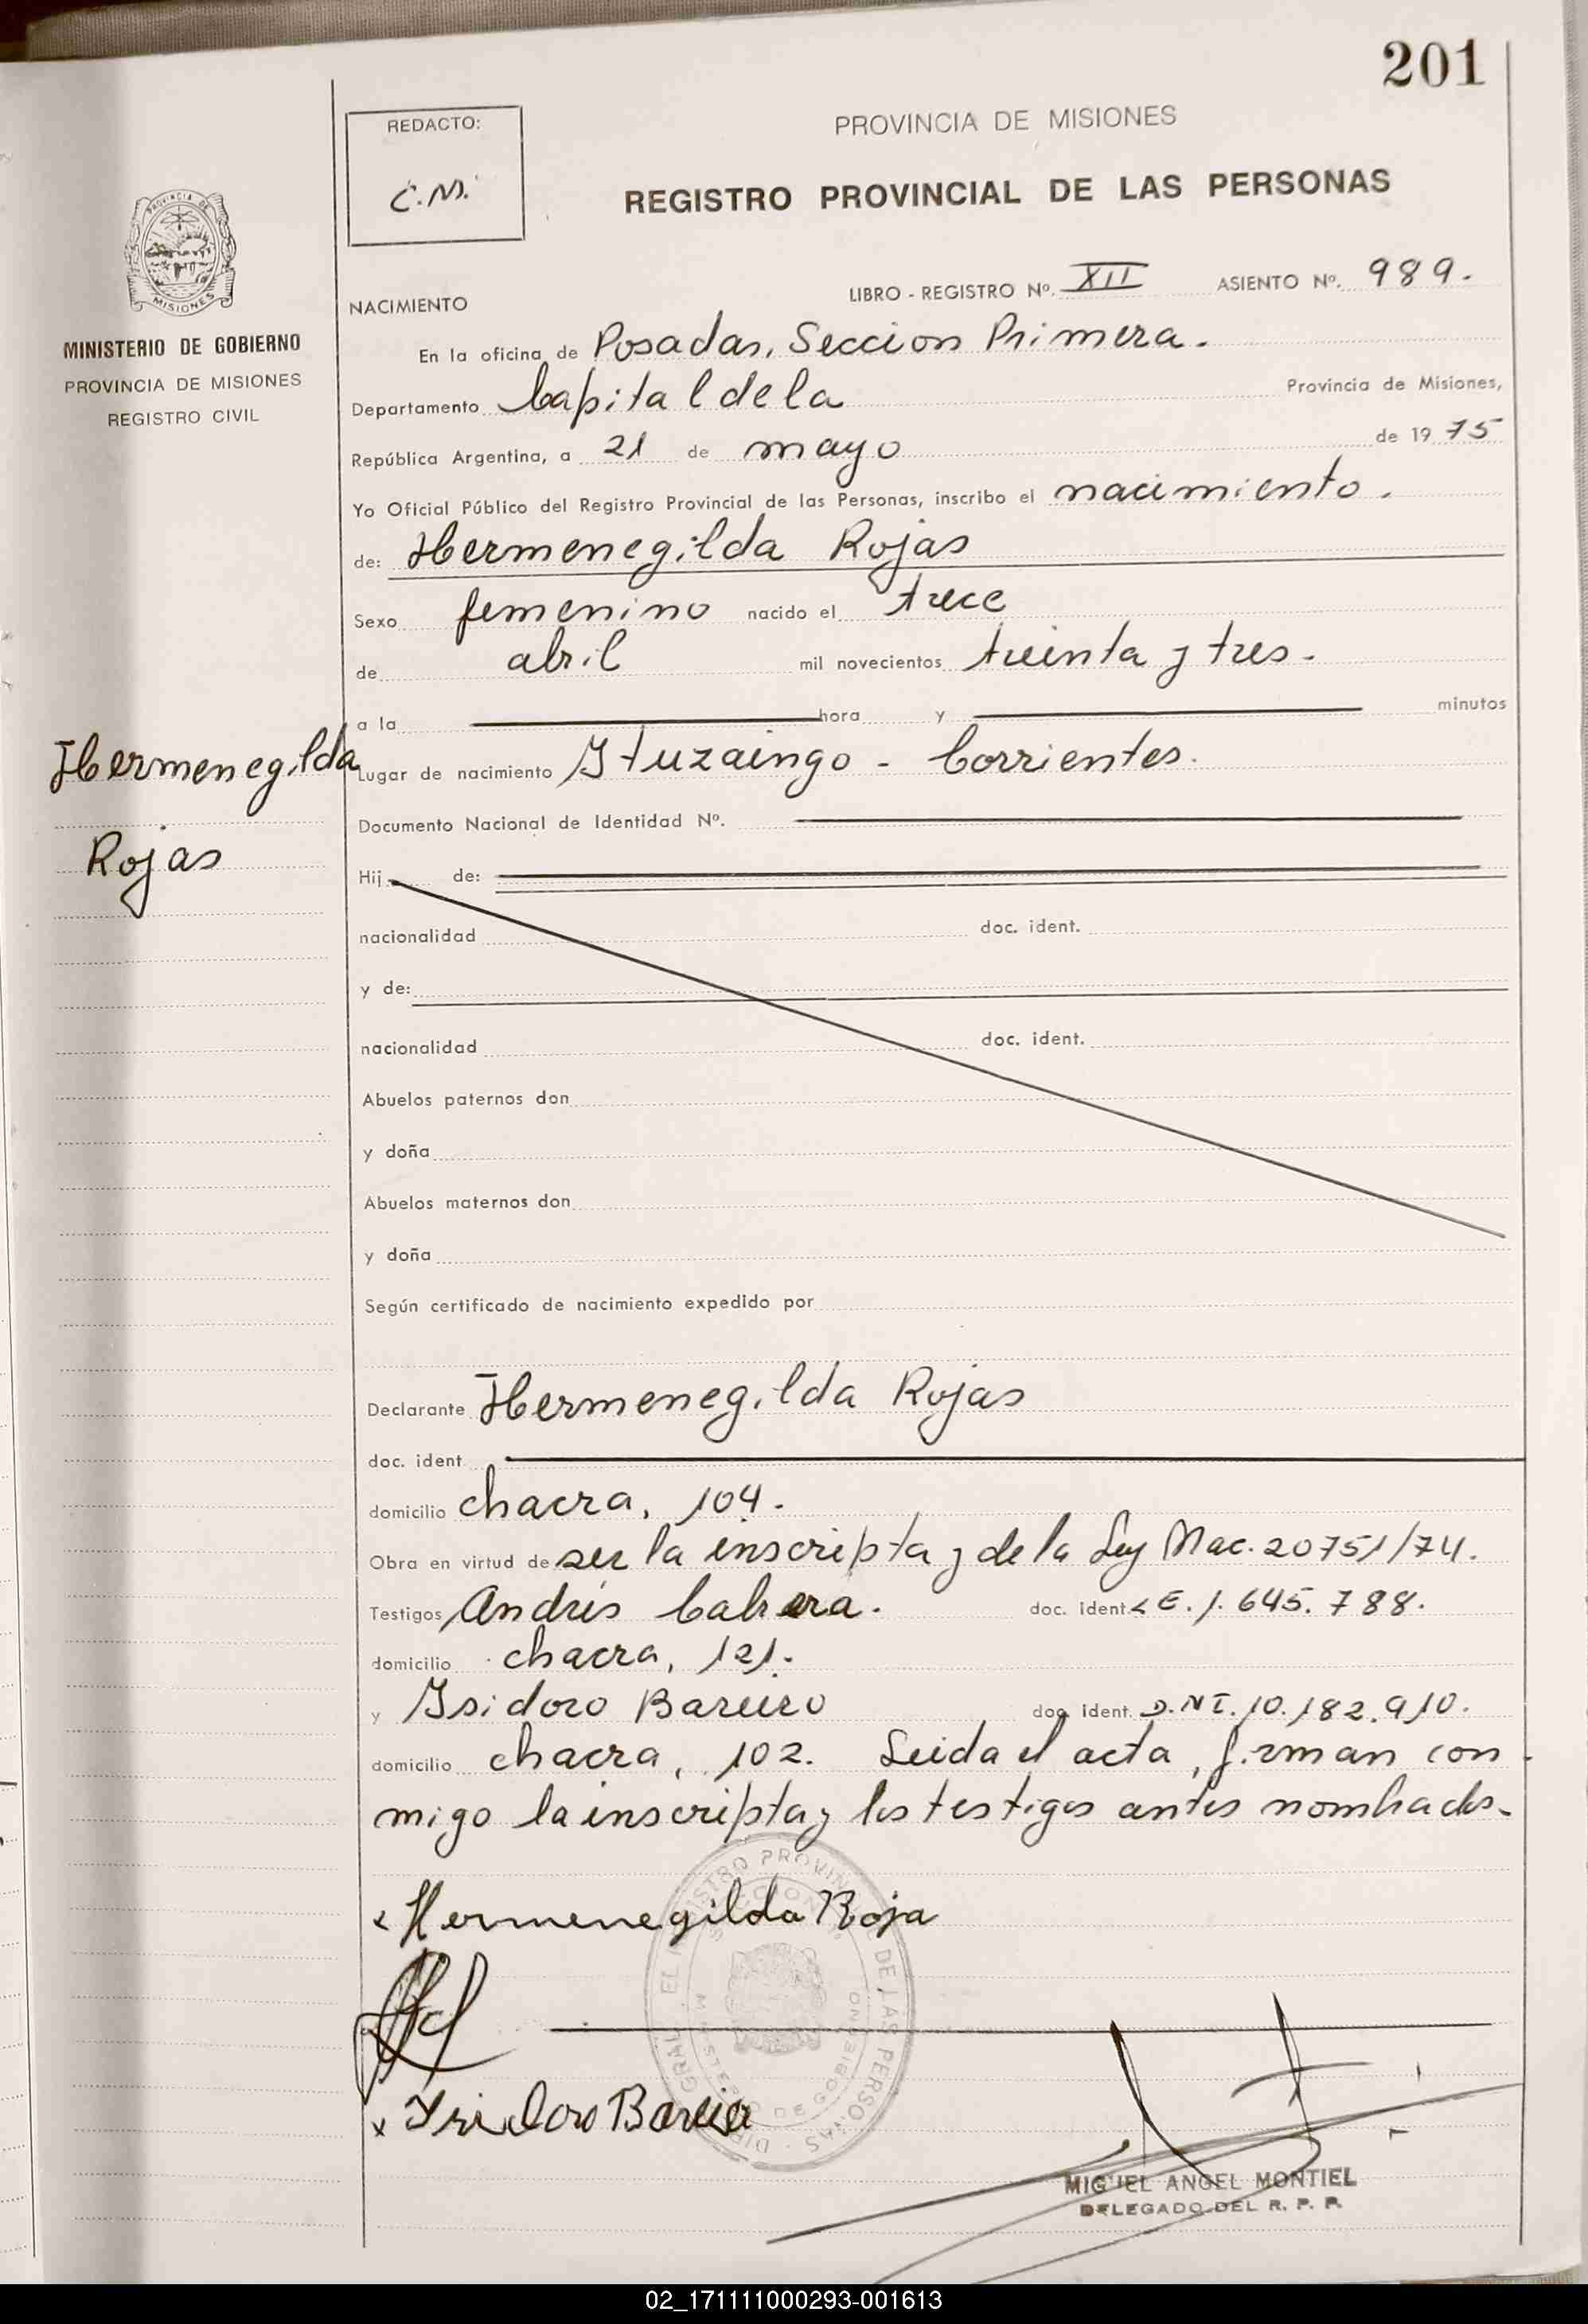 201
REDACTO:
C.M.
PROVINCIA DE MISIONES
REGISTRO PROVINCIAL DE LAS PERSONAS
PROVINCIA DE
MISIONES
MINISTERIO DE GOBIERNO
PROVINCIA DE MISIONES
REGISTRO CIVIL
NACIMIENTO
LIBRO - REGISTRO Nº. XII ASIENTO Nº. 989.
En la oficina de Posadas, Seccion Primera.
Departamento Capital de la Provincia de Misiones,
República Argentina, a 21 de mayo de 1975
Yo Oficial Público del Registro Provincial de las Personas, inscribo el nacimiento.
de: Hermenegilda Rojas
Sexo femenino nacido el trece
de abril mil novecientos treinta y tres.
a la hora y minutos
Hermenegilda
Rojas
Lugar de nacimiento Ituzaingo - Corrientes.
Documento Nacional de Identidad Nº.
Hij de:
nacionalidad doc. ident.
y de:
nacionalidad doc. ident.
Abuelos paternos don
y doña
Abuelos maternos don
y doña
Según certificado de nacimiento expedido por
Declarante Hermenegilda Rojas
doc. ident
domicilio chacra, 104.
Obra en virtud de ser la inscripta y de la Ley Nac. 20751/74.
Testigos Andrés Cabrera. doc. ident L E. 1. 645. 788.
domicilio chacra, 121.
y Isidoro Bareiro doc. ident. D.NI. 10.182.910.
domicilio chacra, 102. Leida el acta, firman con
migo la inscripta y los testigos antes nombrados.
x Hermenegilda Roja
x Isidoro Bareiro
MIGUEL ANGEL MONTIEL
DELEGADO DEL R. P. P.
02_171111000293-001613